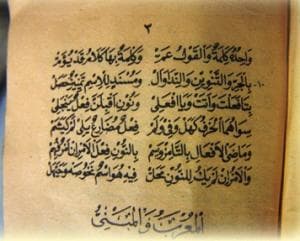 ٢
واحده كلمة والقول عم وكلمة بها كلام قد يؤم
١٠- بالجر والتنوين والندا وأل ومسند للاسم تمييز حصل
بتا فعلت وأتت ويا افعلي ونون أقبلن فعل ينجلي
سواهما الحرف كهل وفي ولم فعل مضارع يلي لم كيشم
وماضي الأفعال بالتا مز وسم بالنون فعل الأمر إن أمر فهم
والأمر إن لم يك للنون محل فيه هو اسم نحو صه وحيهل
المعرب والمبني